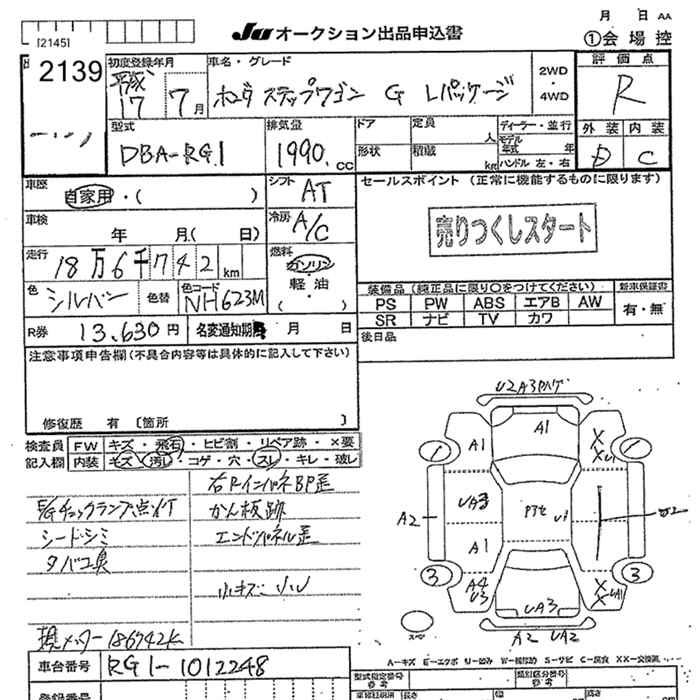 [2145]
JU オークション出品申込書
月 日 AA
①会場控
2139
初度登録年月
平成
17 7月
車名・グレード
ホンダ ステップワゴン G Lパッケージ
2WD
・
4WD
評価点
R
外装 内装
D C
型式
DBA-RG1
排気量
1990 cc
ドア
定員
人
形状
積載
kg
ディーラー・並行
モデル年式 年
ハンドル 左・右
車歴
自家用・( )
シフト
AT
セールスポイント (正常に機能するものに限ります)
売りつくしスタート
車検
年 月( 日)
冷房
A/C
走行
18万6千742km
燃料
ガソリン
軽油
( ・ )
色
シルバー
色替
色コード
NH623M
装備品(純正品に限り○をつけてください)
新車保証書
PS PW ABS エアB AW
有・無
SR ナビ TV カワ
R券 13,630円 名変通知期限 月 日
後日品
注意事項申告欄(不具合内容等は具体的に記入して下さい)
修復歴 有 〔箇所 〕
検査員 FW キズ・飛石・ヒビ割・リペア跡・×要
記入欄 内装 キズ・汚し・コゲ・穴・スレ・キレ・破レ
右Rインパネ BP歪
E/Gチェックランプ点灯 かん板跡
シートシミ エンドパネル歪
タバコ臭
小キズ・小U
現メーター186742K
車台番号 RG1-1012248
登録番号
U2A3ハゲ
A1
A1
X
XU1
1
1
UA3
Pガセ
U1
A2
U2
A1
3
3
A4
U3
X
XUA1
UA3
スペア
A2 UA2
A-キズ E-エクボ U-凹み W-補修跡 S-サビ C-腐食 XX-交換済
型式指定番号
参考
類別区分番号
参考
車輌総重量
長さ